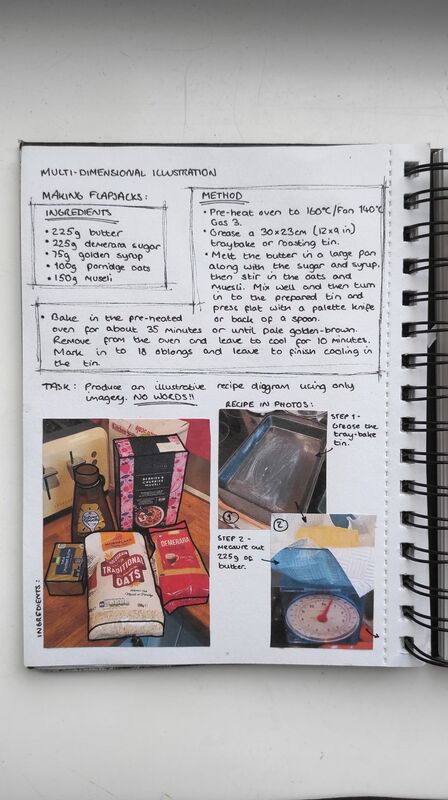 MULTI-DIMENSIONAL ILLUSTRATION
MAKING FLAPJACKS:
INGREDIENTS
• 225g butter
• 225g demerara sugar
• 75g golden syrup
• 100g porridge oats
• 150g museli
METHOD
• Pre-heat oven to 160°C/Fan 140°C
Gas 3.
• Grease a 30x23cm (12x9 in)
traybake or roasting tin.
• Melt the butter in a large pan
along with the sugar and syrup,
then stir in the oats and
Muesli. Mix well and then turn
in to the prepared tin and
press flat with a palette knife
or back of a spoon.
• Bake in the pre-heated
oven for about 35 minutes or until pale golden-brown.
Remove from the oven and leave to cool for 10 minutes.
Mark in to 18 oblongs and leave to finish cooling in
the tin.
TASK: Produce an illustrative recipe diagram using only
imagery. NO WORDS!!
RECIPE IN PHOTOS:
STEP 1 -
Grease the
tray-bake
tin.
1
STEP 2 -
Measure out
225g of
butter.
2
INGREDIENTS:
BERRIES &
CHERRIES
MUESLI
DEMERARA
MORNFLAKE
TRADITIONAL
OATS